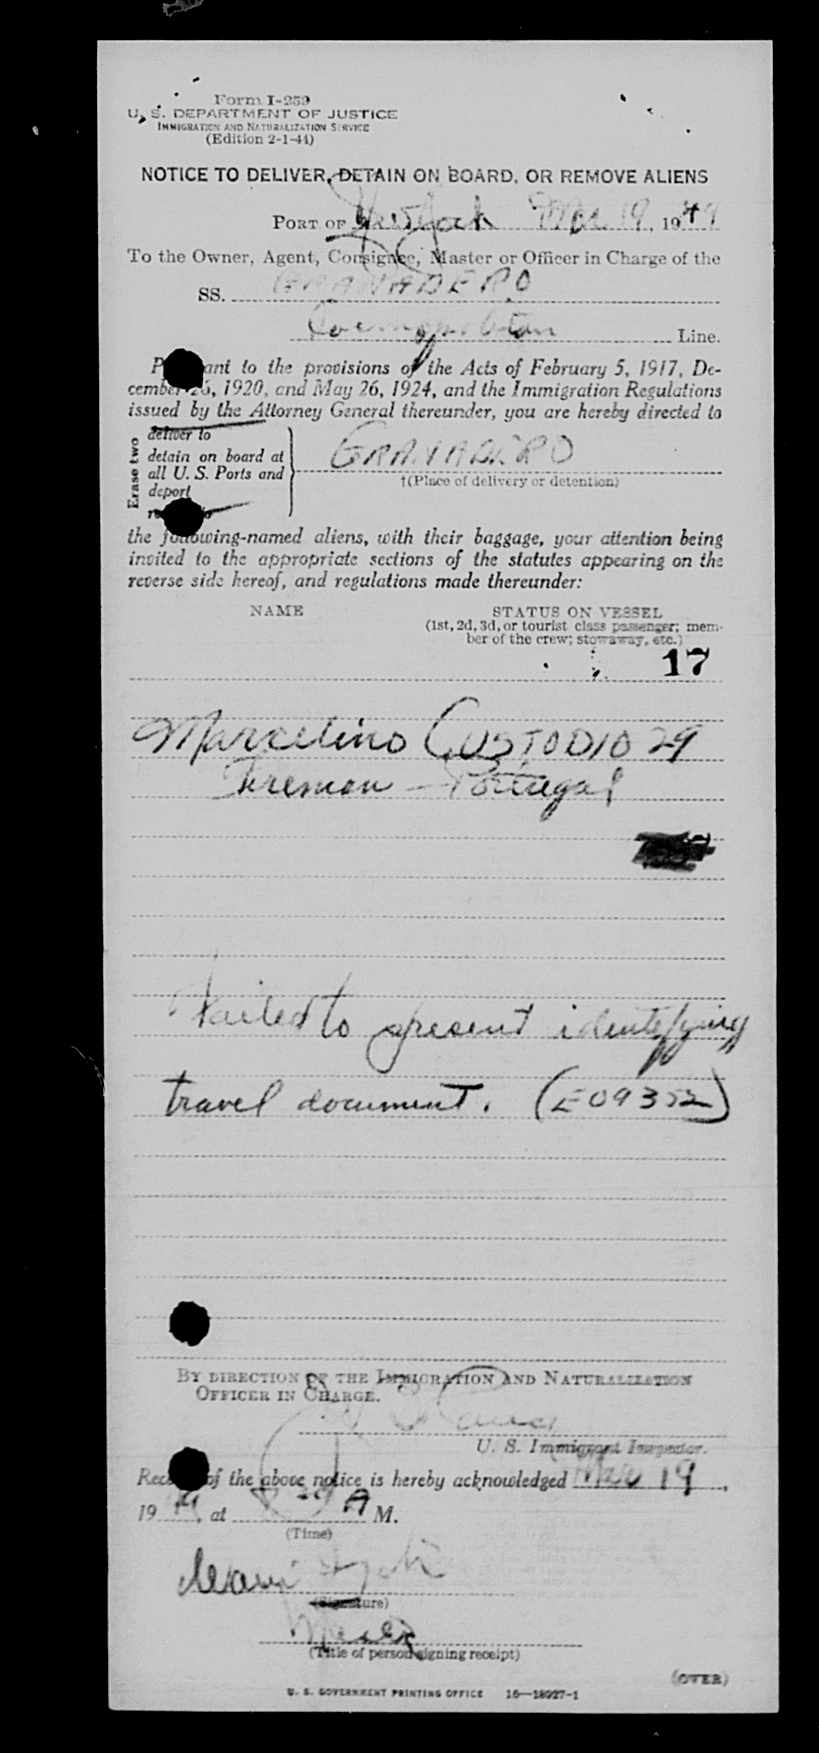 Form I-259
U. S. DEPARTMENT OF JUSTICE
IMMIGRATION AND NATURALIZATION SERVICE
(Edition 2-1-44)
NOTICE TO DELIVER, DETAIN ON BOARD, OR REMOVE ALIENS
PORT OF New York Mar 19, 1949
To the Owner, Agent, Consignee, Master or Officer in Charge of the
SS. GRANADERO
Cosmopolitan Line.
Pursuant to the provisions of the Acts of February 5, 1917, De-
cember 26, 1920, and May 26, 1924, and the Immigration Regulations
issued by the Attorney General thereunder, you are hereby directed to
Erase two
deliver to
detain on board at
all U. S. Ports and
deport
GRANADERO
†(Place of delivery or detention)
the following-named aliens, with their baggage, your attention being
invited to the appropriate sections of the statutes appearing on the
reverse side hereof, and regulations made thereunder:
NAME
STATUS ON VESSEL
(1st, 2d, 3d, or tourist class passenger; mem-
ber of the crew; stowaway, etc.)
17
Marcelino CUSTODIO 29
Fireman - Portugal
Failed to present identifying
travel document. (E09352)
BY DIRECTION OF THE IMMIGRATION AND NATURALIZATION
OFFICER IN CHARGE.
U. S. Immigrant Inspector.
Receipt of the above notice is hereby acknowledged Mar 19,
1949, at A M.
(Time)
(Signature)
(Title of person signing receipt)
(OVER)
U. S. GOVERNMENT PRINTING OFFICE 16—18927-1